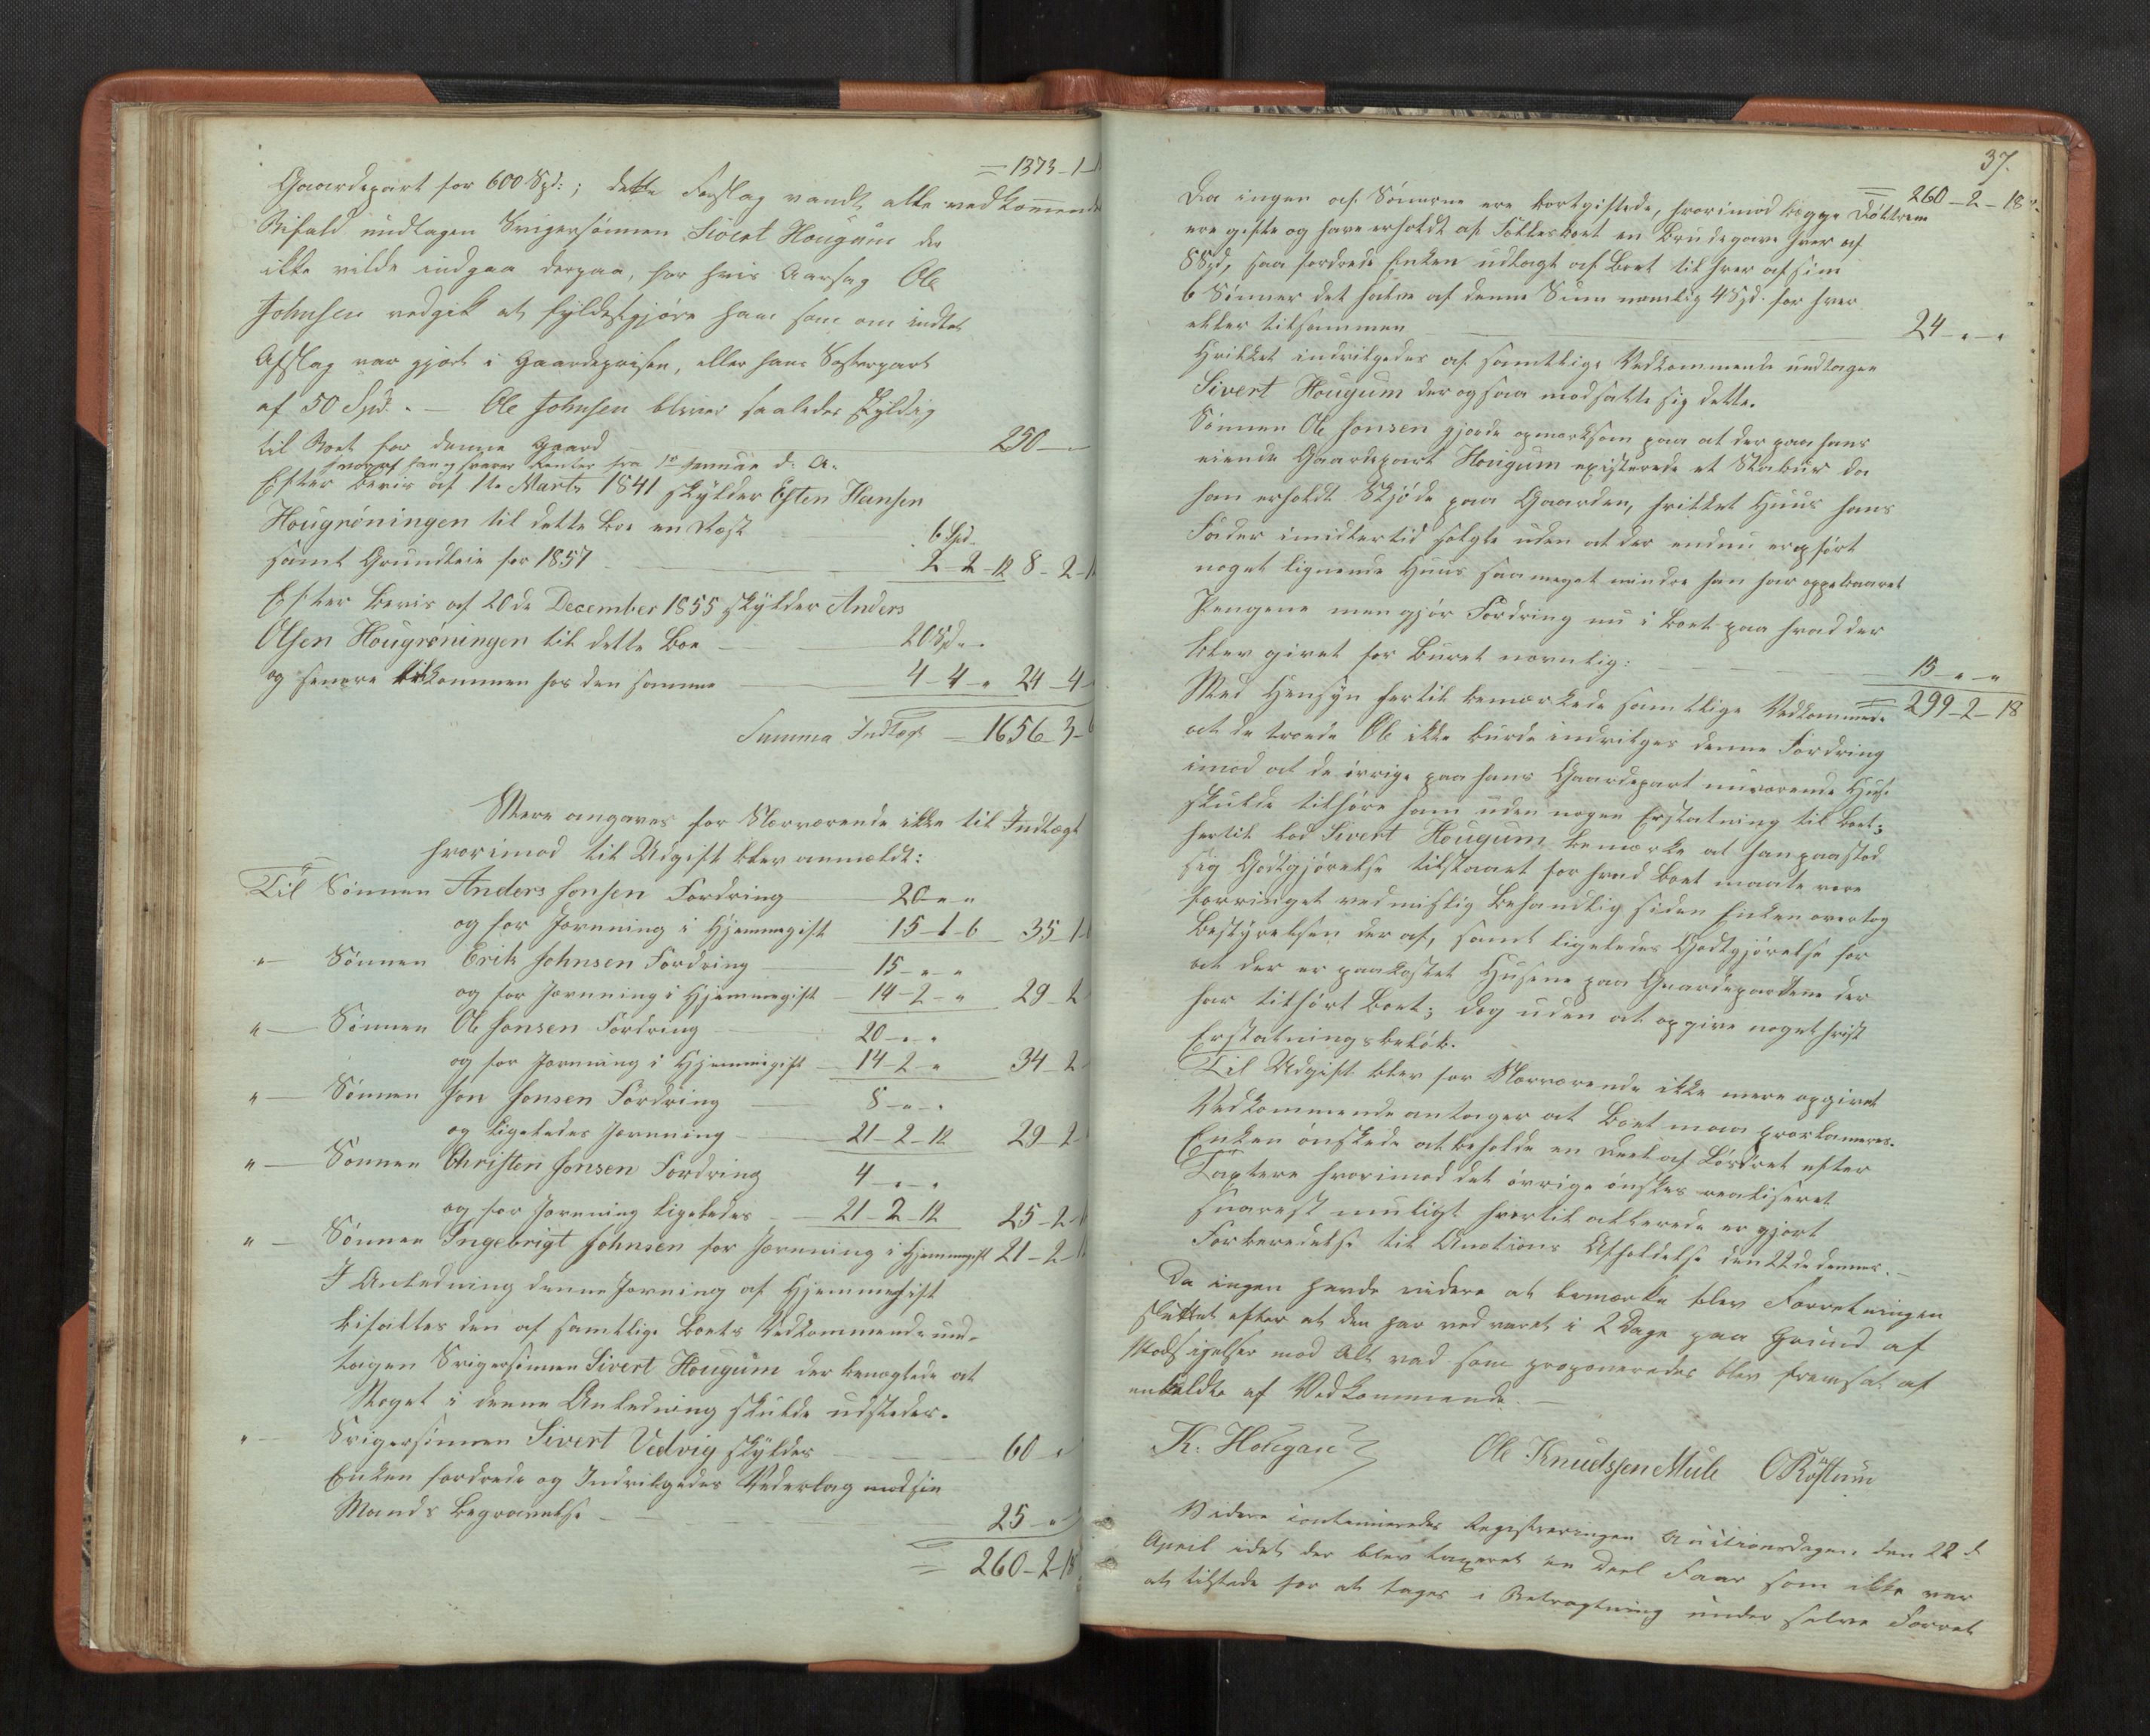 = 1373-1-
Gaardepart for 600 Spd:; dette Forslag vandt alle vedkommende
Bifald undtagen Svigersønnen Sivert Hougum der
ikke vilde indgaa derpaa, for hvis Aarsag Ole
Johnsen vedgik at fyldestgjøre ham som om indtet
Afslag var gjort i Gaardeprisen, eller hans Søsterpart
af 50 Spd. - Ole Johnsen bliver saaledes skyldig
til Boet for denne Gaard 250 -
hvoraf han svarer Renter fra 1ste Januar d: A.
Efter Bevis af 1te Marts 1841 skylder Esten Hansen
Hougrøningen til dette Boe en Rest 6 Spd.
samt Grundleie for 1857 2-2-12 8-2-1
Efter Bevis af 20de December 1855 skylder Anders
Olsen Hougrøningen til dette Boe - 20 Spd. -
og senere tilkommen hos den samme 4-4-" 24-4-
Summa Indtægt = 1656-3-
Mere angaves for Nærværende ikke til Indtægt
hvorimod til Udgift blev anmeldt:
Til Sønnen Anders Jonsen Fordring 20-"-"
og for Jævnning i Hjemmegift 15-1-6 35-1-
"- Sønnen Erik Johnsen Fordring 15-"-"
og for Jævnning i Hjemmegift 14-2-" 29-2
"- Sønnen Ole Jonsen Fordring 20-"-"
og for Jævnning i Hjemmegift 14-2-" 34-2
"- Sønnen Jon Jonsen Fordring 8-"-"
og ligeledes Jævnning 21-2-12 29-2
"- Sønnen Christen Jonsen Fordring 4-"-"
og for Jævnning ligeledes 21-2-12 25-2-
"- Sønnen Ingebrigt Johnsen for Jævnning i Hjemmegift 21-2-
I Anledning denne Jævning af Hjemmegift
bifaltes den af samtlige Boets Vedkommende und-
tagen Svigersønnen Sivert Hougum der benægtede at
Noget i denne Anledning skulde udstedes.
"- Svigersønnen Sivert Vedvig skyldes 60 -
Enken fordrede og Indvilgedes Vederlag mod sin
Mands Begravelse 25 -
= 260-2-18
37.
= 260-2-18
Da ingen af Sønnerne ere bortgiftede, hvorimod begge Døttrene
ere gifte og have erholdt af Fælledsboet en Brudegave hver af
8 Spd, saa fordrede Enken udlagt af Boet til hver af sine
6 Sønner det halve af denne Sum nemlig 4 Spd. for hver
eller tilsammen 24-"-"
Hvilket indvilgedes af samtlige Vedkommende undtagen
Sivert Hougum der ogsaa modsatte sig dette.
Sønnen Ole Jonsen gjorde opmærksom paa at der paa hans
eiende Gaardepart Hougum existerede et Stabur da
han erholdt Skjøde paa Gaarden, hvilket Huus hans
Fader imidlertid solgte uden at der endnu er opført
noget lignende Huus saameget mindre han har oppebaaret
Pengene men gjør Fordring nu i Boet paa hvad der
blev givet for Buret nemlig: 15-"-"
= 299-2-18
Med Hensyn hertil bemærkede samtlige Vedkommende
at de troede Ole ikke burde indvilges denne Fordring
imod at de øvrige paa hans Gaardepart nuværende Huse
skulde tilhøre ham uden nogen Erstatning til Boet;
hertil lod Sivert Hougum bemærke at han paastod
sig Godtgjørelse tilstaaet for hvad Boet maate være
forringet ved mislig Behandlig siden Enken overtog
Bestyrelsen der af, samt ligeledes Godtgjørelse for
at der er paakostet Husene paa Gaardepartene der
har tilhørt Boet; dog uden at opgive noget hvist
Erstatningsbeløb.
Til Udgift blev for Nærværende ikke mere opgivet
Vedkommende antager at Boet maa proclameres.
Enken ønskede at beholde en Deel af Løsøret efter
Taxten hvorimod det øvrige ønskes realiseret
snarest muligt hvortil allerede er gjort
Forberedelse til Auctions Afholdelse den 22de dennes. -
Da ingen havde videre at bemærke blev Forretningen
sluttet efter at den har vedvaret i 2 Dage paa Grund af
Modsigelser mod Alt vad som proponeredes blev fremsat af
enkeldte af Vedkommende. -
K. Hougan
Ole Knudssen Mule O Røstum
Videre continueredes Registreringen Auctionsdagen den 22 d
April idet der blev taxeret en Deel Faar som ikke var
at tilstede for at tages i Betragtning under selve Forret